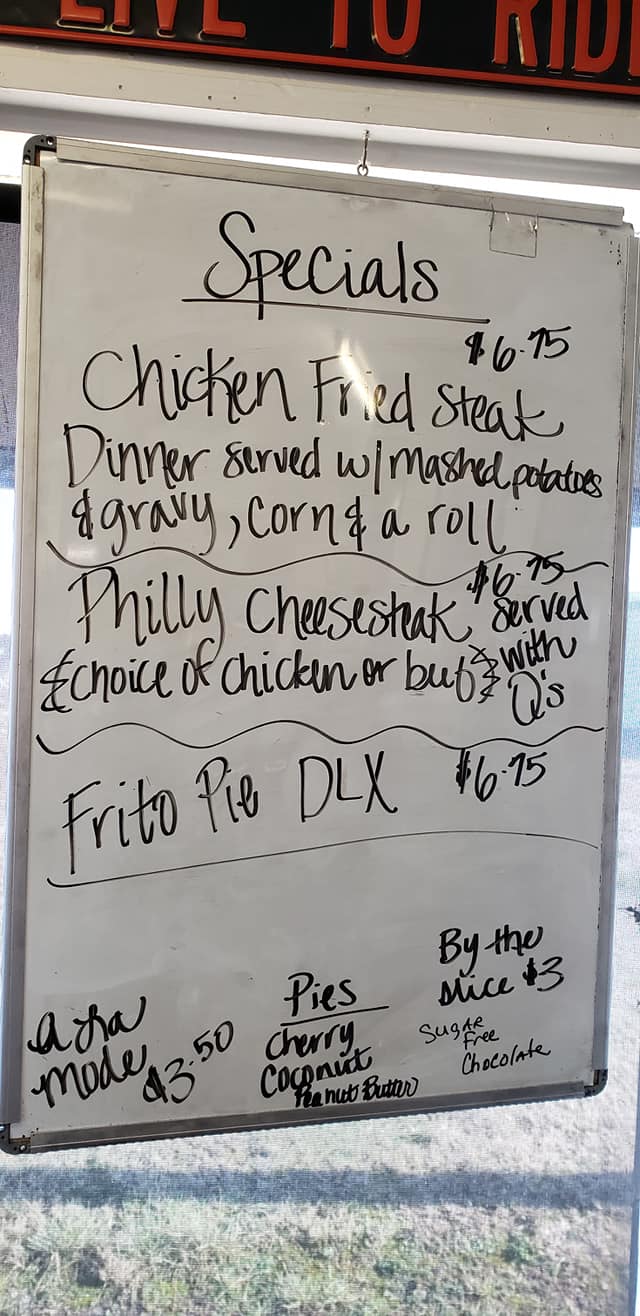 LIVE TO RIDE
Specials
$6.75
Chicken Fried Steak
Dinner served w/ mashed potatoes
& gravy, corn & a roll
Philly Cheesesteak $6.75 served
& choice of chicken or beef with
Q's
Frito Pie DLX $6.75
By the
slice $3
Pies
Cherry
Coconut
Peanut Butter
Sugar
Free
Chocolate
a la
mode $3.50